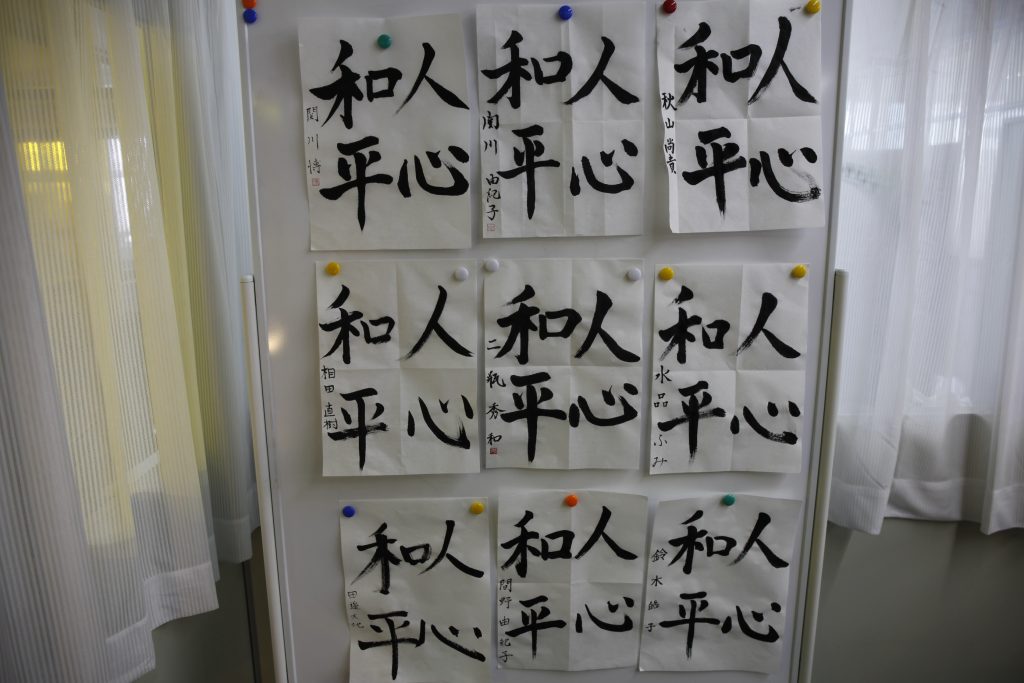 人心
和平
関川
人心
和平
関川 由紀子
人心
和平
秋山尚貴
人心
和平
相田直樹
人心
和平
二瓶秀和
人心
和平
水品ふみ
人心
和平
人心
和平
間野由紀子
人心
和平
鈴木皓子